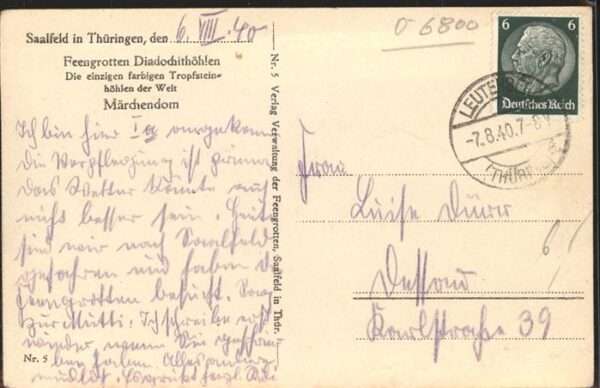 Saalfeld in Thüringen, den 6. VIII. 40
Feengrotten Diadochithöhlen
Die einzigen farbigen Tropfstein-
höhlen der Welt
Märchendom
Ich bin hier Ia angekomm
Die Verpflegung ist prima
Das Wetter könnte auch
nicht besser sein. Heute
sind wir nach Saalfeld
gefahren und haben d
Feengrotten besucht.
zur Mutti: Ich schreibe erst
wieder wenn Sie geschrie
ben haben. Alles
Es grüßt herzl.
Nr. 5
Nr. 5 Verlag Verwaltung der Feengrotten, Saalfeld in Thür.
0 6800
6 6
Deutsches Reich
LEUTEN
-7.8.40.7-8
(THÜR
Frau
Luise Dürr
Dessau
Karlstraße 39